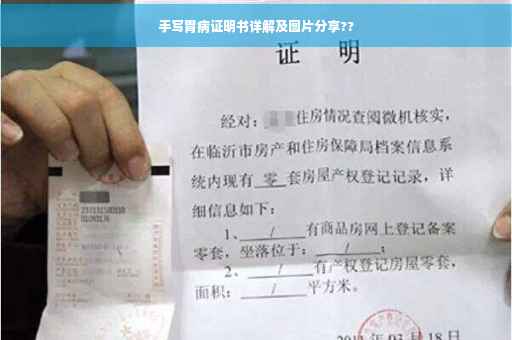 手写胃病证明书详解及图片分享??
证 明
经对：住房情况查阅微机核实，
在临沂市房产和住房保障局档案信息系
统内现有 零 套房屋产权登记记录，详
细信息如下：
1、 / 有商品房网上登记备案
零套，坐落位于： / ；
2、 / 有产权登记房屋零套，
面积： / 平方米。
03 月 18 日